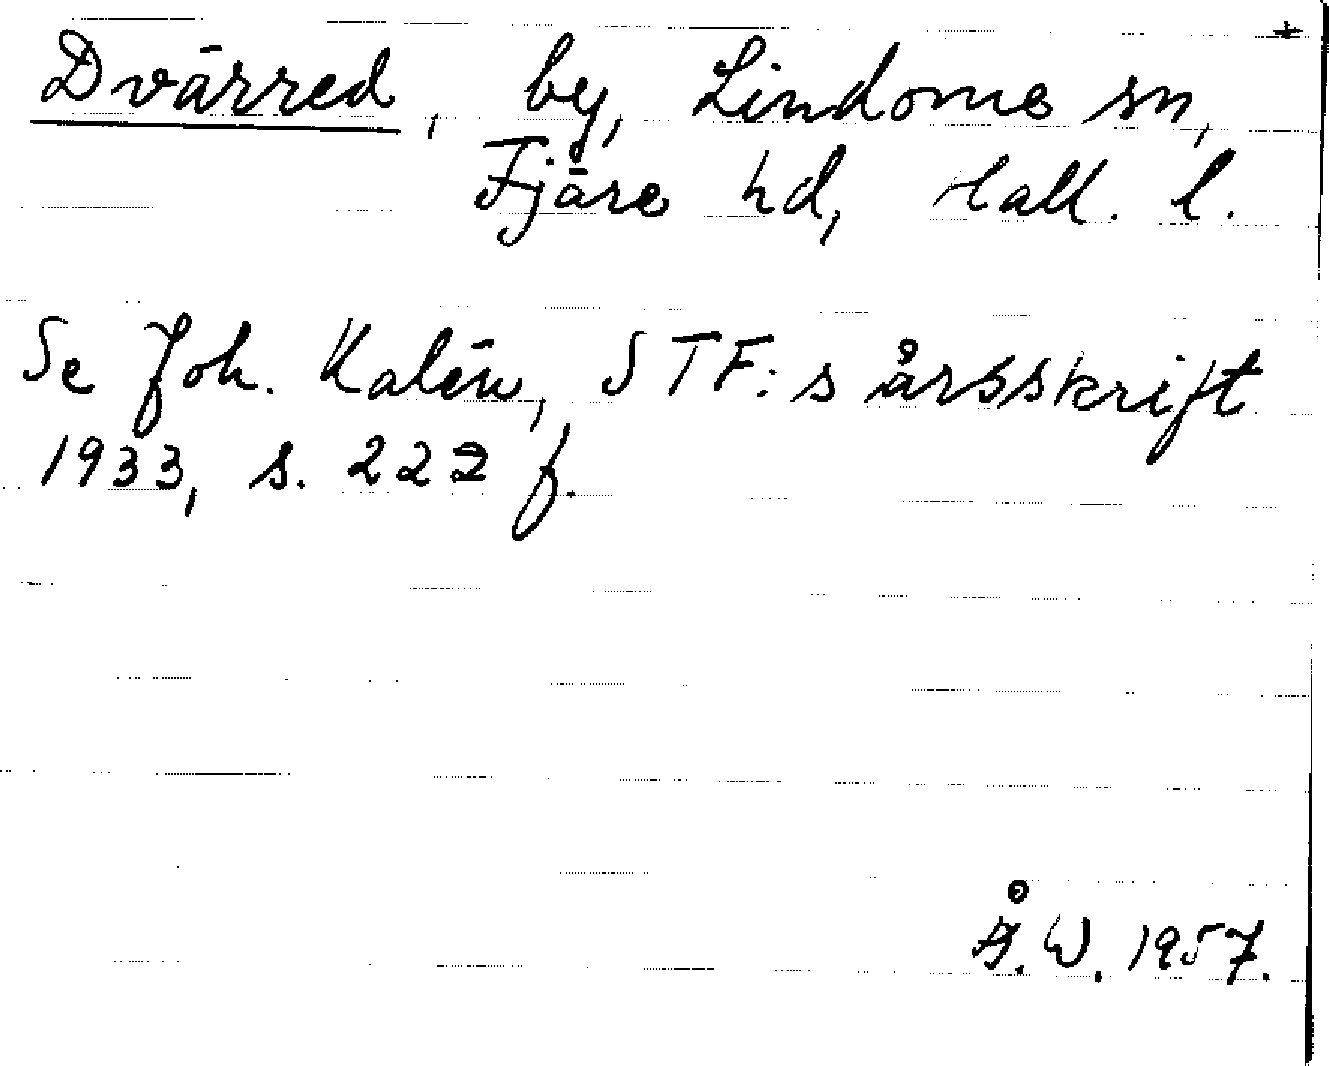 Dvärred, by, Lindome sn, +
Fjäre hd, Hall. l.
Se Joh. Kalén, STF:s årsskrift
1933, s. 222 f.
Å.W. 1957.